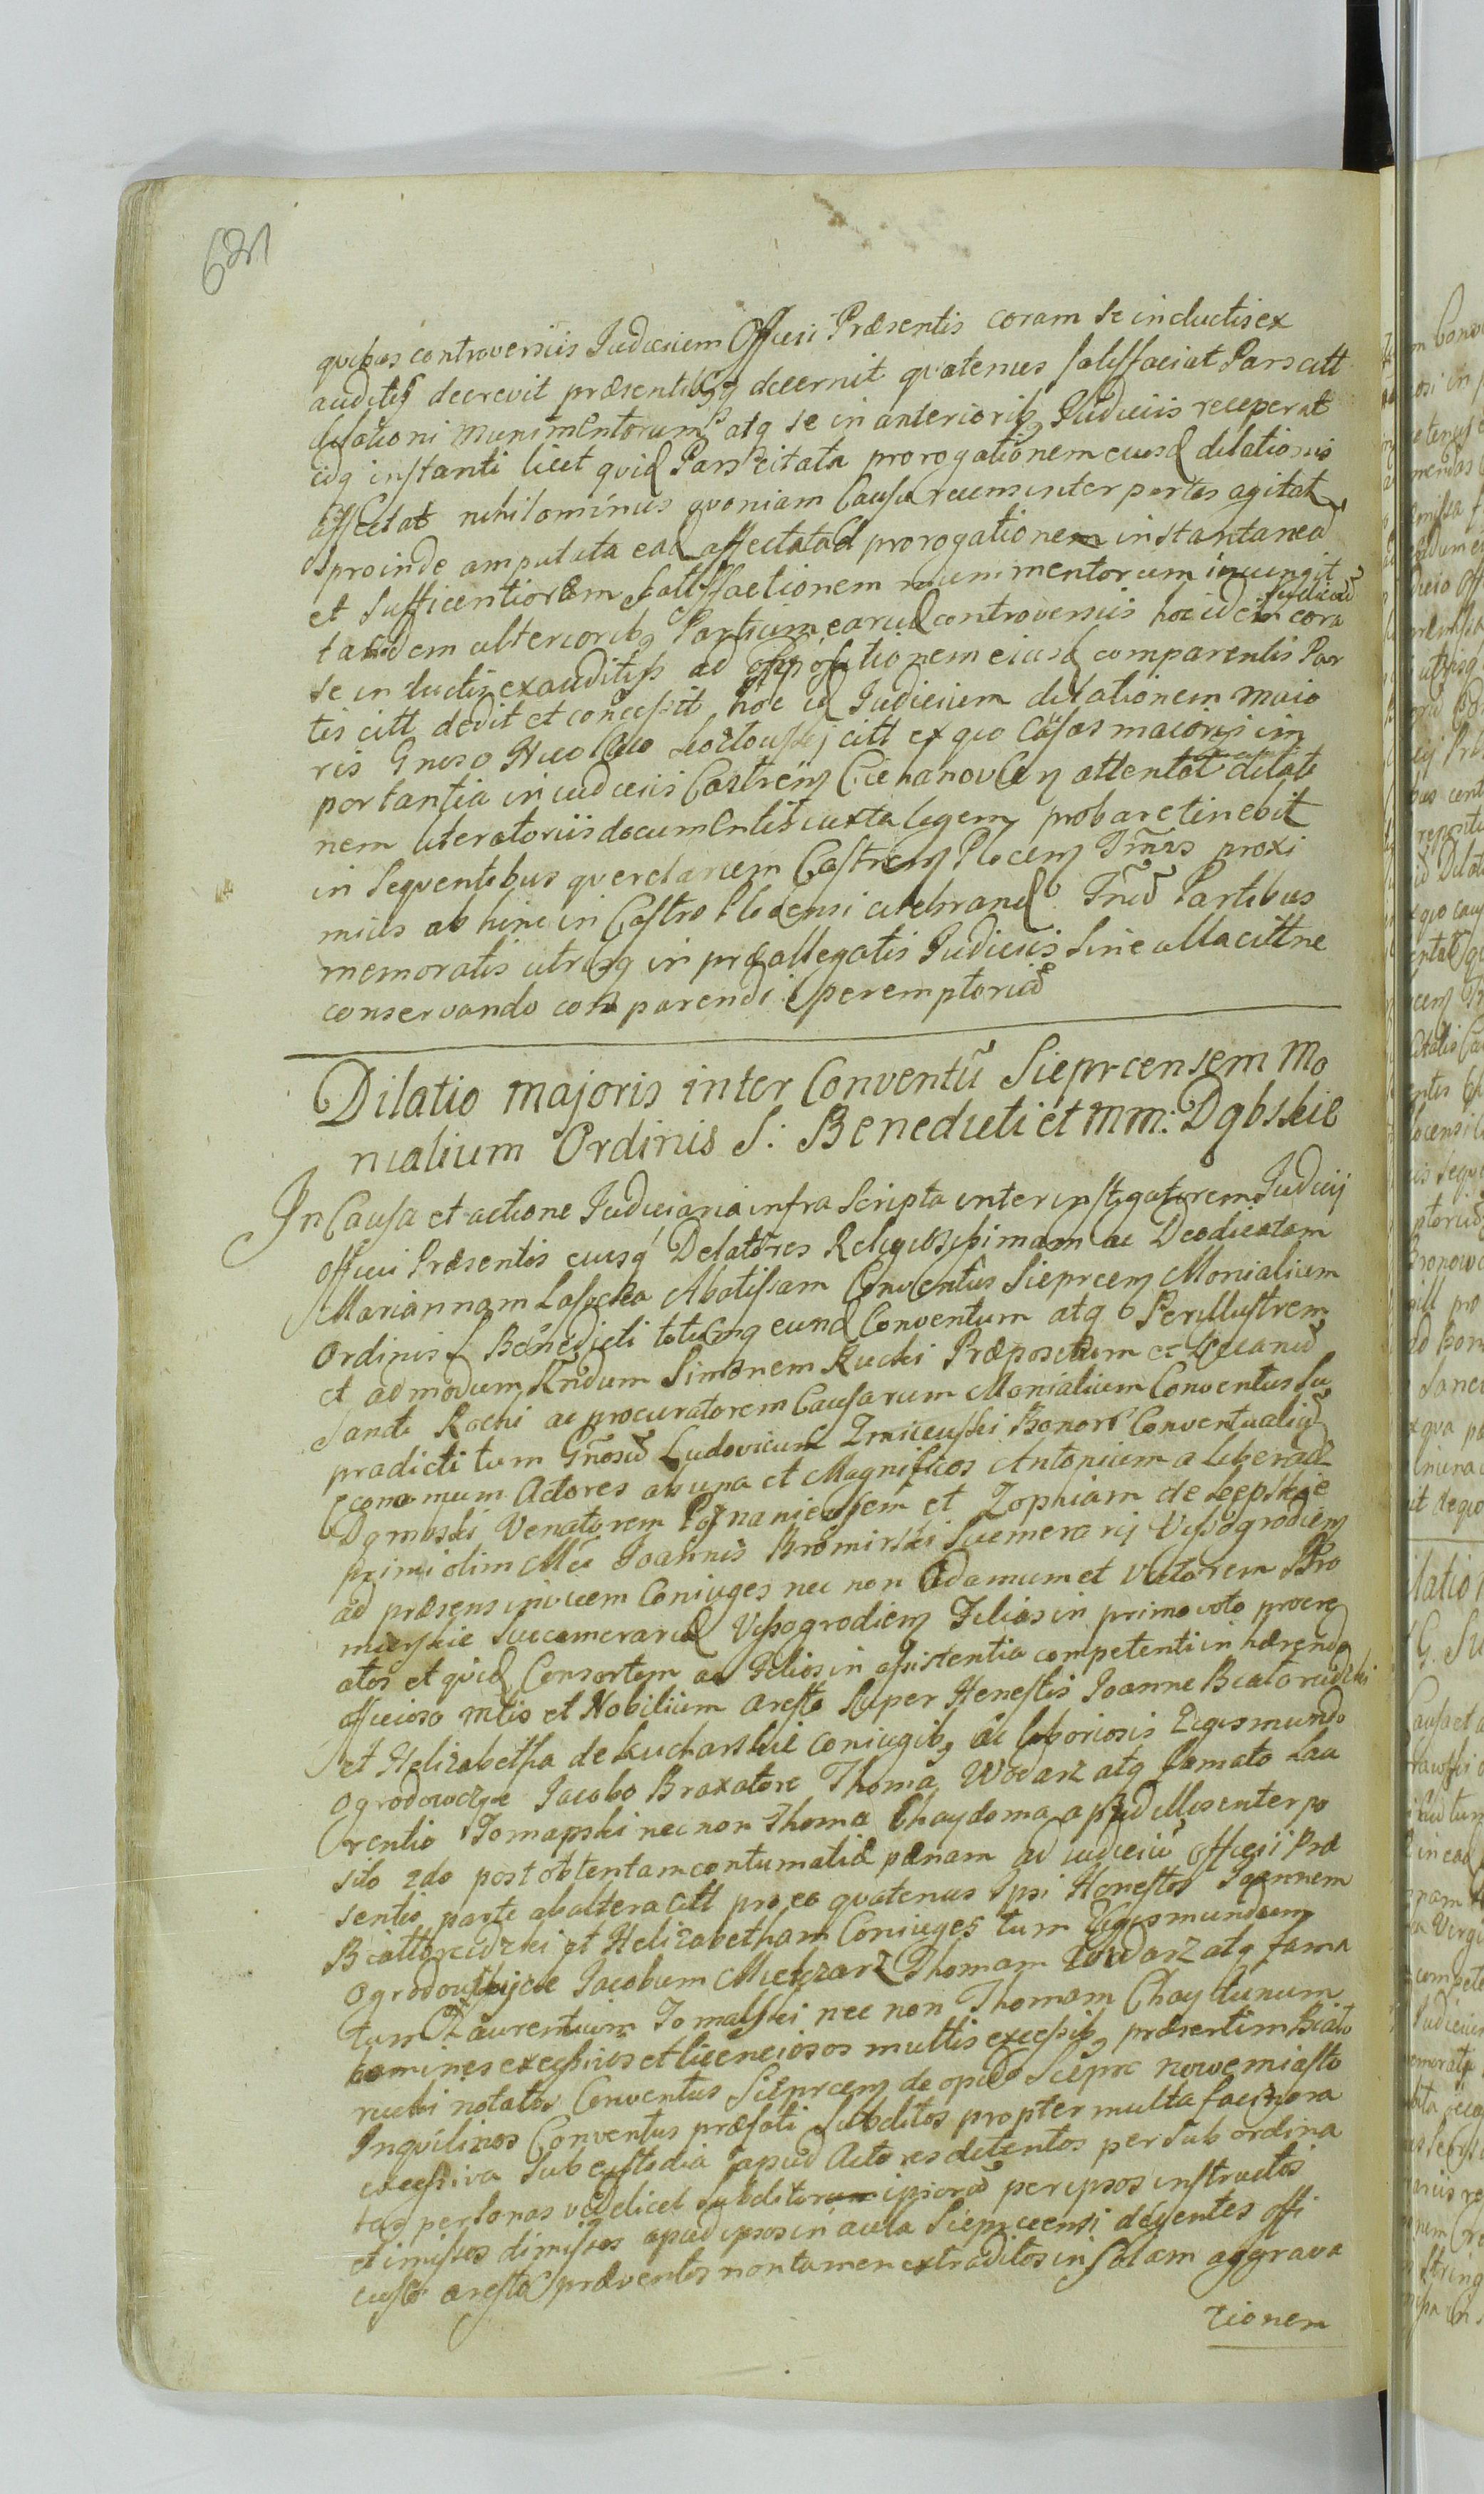 621
quibus controversiis Judicium Officii Præsentis coram se inductis ex
auditisq decrevit præsentibusq decernit quatenus satisfaciat Pars citt
dilationi munimentorum atq se in anterioribq Judiciis receperat
eiq instanti licet quid Pars citata prorogationem eiusd dilationis
affectat nihilominus quoniam Causa recens inter partes agitat
proinde amputata ead affectatad prorogationem instantanea
et sufficientiorem satisfactionem munimentorum iniungit
tandem ulterioribq Partium earud controversiis hoc idem Judiciu cora
se inductis exauditisq ad affectationem eiusd comparentis Par
tis citt dedit et concessit hoc id Judicium dilationem maio
ris Gnoso Nicolao citt ex quo Causas maioris im
portantia in iudiciis Castren Ciechanovien attentat dilatio
nem literatoriis documentis iuxta legem probare tinebit
in sequentibus querelarum Castren Plocen Tmis proxi
mius ab hinc in Castro Plocensi celebrand. Tnu Partibus
memoratis utrisq in præallegatis Judiciis sine ulla cittne
conservando comparendi peremptoriu
Dilatio majoris inter Conventu Sieprcensem Mo
nialium Ordinis S: Benedicti et MM: Dąbskie
In Causa et actione Judiciaria infra scripta inter instigatorem Judicij
officii Præsentis eiusq Delatores Religiosissimam ac Deodicatam
Mariannam Lasocka Abatissam Conventus Sieprcen Monialium
Ordinis S Benedicti totumq eund Conventum atq Perillustrem
et admodum Rndum Simonem Rucki Præpositum et Decanu
Sancti Rochi ac procuratorem Causarum Monialium Conventus su
pradicti tum Gnosu Ludovicum Zmiiewski Bonor Conventualiu
Economum Actores ab una et Magnificos Antonium a
Dąmbski Venatorem Poznaniensem et Zophiam de Lepskie
primi olim Mci Joannis Bromirski Succamerarij Vyssogrodien
ad præsens invicem Coniuges nec non Adamum et Victorem Bro
mirskie Succamerarid Vyssogrodien Filios in primo voto procre
atos et quid Consortem ac Filios in assistentia competenti inhærendo
officioso mtio et Nobilium aresto super Honestis Joanne Białorudzki
et Helizabetha de Kucharskie coniugibq ac laboriosis Zigismundo
Ogrodowczyk Jacobo Braxatore Thoma Włodarz atq famato Lau
rentio Tomaski nec non Thoma Chaydoma apud illos interpo
sito 2do post obtentam contumatiæ pænam ad iudiciu officii Præ
sentis parte ab altera citt pro eo quatenus Ipsi Honestos Joannem
Białlorudzki et Helizabetham Coniuges tum Zigismundum
Ogrodowczyk Jacobum Mielczarz Thomam Włodarz atq fama
tum Laurentium Tomaski nec non Thomam Chaydunum
homines excessivos et licenciosos multis excessibq præsertim Biało
rucki notatos Conventus Sieprcen de opido Sieprc nowemiasto
Inquilinos Conventus præfati subditos propter multa facinora
excessiva sub custodia apud Actores detentos per subordina
tas personas videlicet subditorum ipsoru per ipsos instructos
et imissos dimissos apud ipsos in aula Sieprcensi degentes offi
cioso aresto præventos non tamen extraditos in solam aggrava
tionem